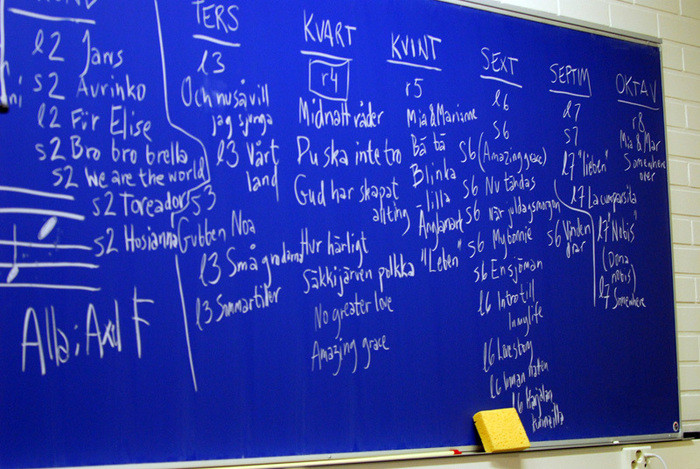 l2 Jans
s2 Aurinko
l2 Für Elise
s2 Bro bro brella
s2 We are the world
s2 Toreador
s2 Hosianna
Alla: Axel F
TERS
l3
Och nu så vill
jag sjunga
l3 Vårt
land
s3
Gubben Noa
l3 Små grodorna
l3 Sommartider
KVART
r4
Midnatt råder
Du ska inte tro
Gud har skapat
allting
Hur härligt
Säkkijärven polkka
No greater love
Amazing grace
KVINT
r5
Mia & Marianne
Bä bä
Blinka
lilla
Änglamark
"Leben"
SEXT
l6
s6
s6 (Amazing grace)
s6 Nu tändas
s6 När juldagsmorgon
s6 My bonnie
s6 En sjöman
l6 Intro till
In my life
l6 Lovestory
l6 Innan natten
l6 Karjalan
kunnailla
SEPTIM
l7
s7
l7 "lieben"
l7 La cumparsita
s6 Vinden
drar
l7 "Nobis"
(Dona
nobis)
l7 Somewhere
OKTAV
r8
Mia & Mar
Somewhere
over